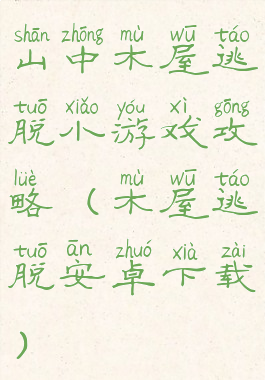 shān zhōng mù wū táo
山中木屋逃
tuō xiǎo yóu xì gōng
脱小游戏攻
lüè mù wū táo
略（木屋逃
tuō ān zhuó xià zài
脱安卓下载
）